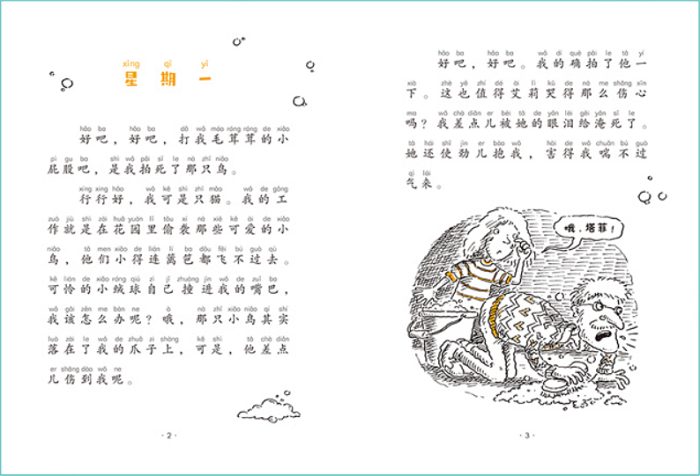 xīng qī yī
星 期 一
hǎo ba hǎo ba dǎ wǒ máo róng róng de xiǎo
好吧，好吧，打我毛茸茸的小
pì gu ba shì wǒ pāi sǐ le nà zhī niǎo
屁股吧，是我拍死了那只鸟。
xíng xíng hǎo wǒ kě shì zhī māo wǒ de gōng
行行好，我可是只猫。我的工
zuò jiù shì zài huā yuán lǐ tōu xí nà xiē kě ài de xiǎo
作就是在花园里偷袭那些可爱的小
niǎo tā men xiǎo de lián lí ba dōu fēi bú guò qù
鸟，他们小得连篱笆都飞不过去。
kě lián de xiǎo róng qiú zì jǐ zhuàng jìn wǒ de zuǐ ba
可怜的小绒球自己撞进我的嘴巴，
wǒ gāi zěn me bàn ne ò nà zhī xiǎo niǎo qí shí
我该怎么办呢？哦，那只小鸟其实
luò zài le wǒ de zhuǎ zi shàng kě shì tā chà diǎn
落在了我的爪子上，可是，他差点
er shāng dào wǒ ne
儿伤到我呢。
· 2 ·
hǎo ba hǎo ba wǒ dí què pāi le tā yí
好吧，好吧。我的确拍了他一
xià zhè yě zhí dé ài lì kū de nà me shāng xīn
下。这也值得艾莉哭得那么伤心
ma wǒ chà diǎn er bèi tā de yǎn lèi gěi yān sǐ le
吗？我差点儿被她的眼泪给淹死了。
tā hái shǐ jìn er bào wǒ hài de wǒ chuǎn bú guò
她还使劲儿抱我，害得我喘不过
qì lái
气来。
哦，塔菲！
· 3 ·